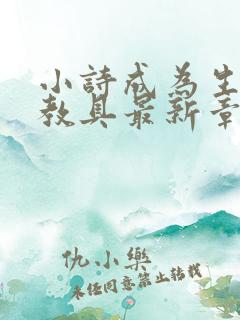 小詩成為生
教具最新章
仇小樂
未径同意禁止转载